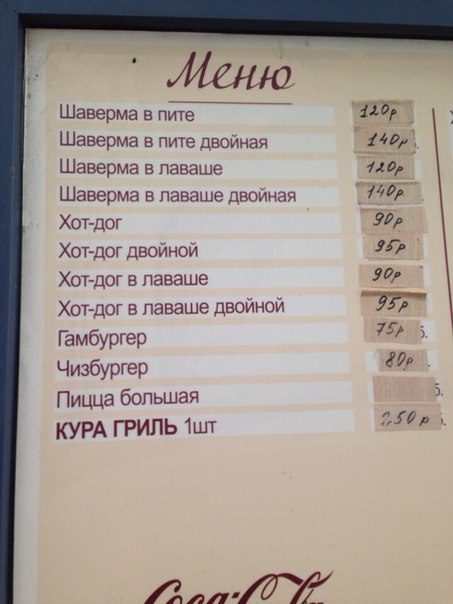 Меню
Шаверма в пите 120р
Шаверма в пите двойная 140р.
Шаверма в лаваше 120р
Шаверма в лаваше двойная 140р
Хот-дог 90р
Хот-дог двойной 95р
Хот-дог в лаваше 90р
Хот-дог в лаваше двойной 95р
Гамбургер 75р б.
Чизбургер 80р
Пицца большая б.
КУРА ГРИЛЬ 1шт 250р
Coca-Cola